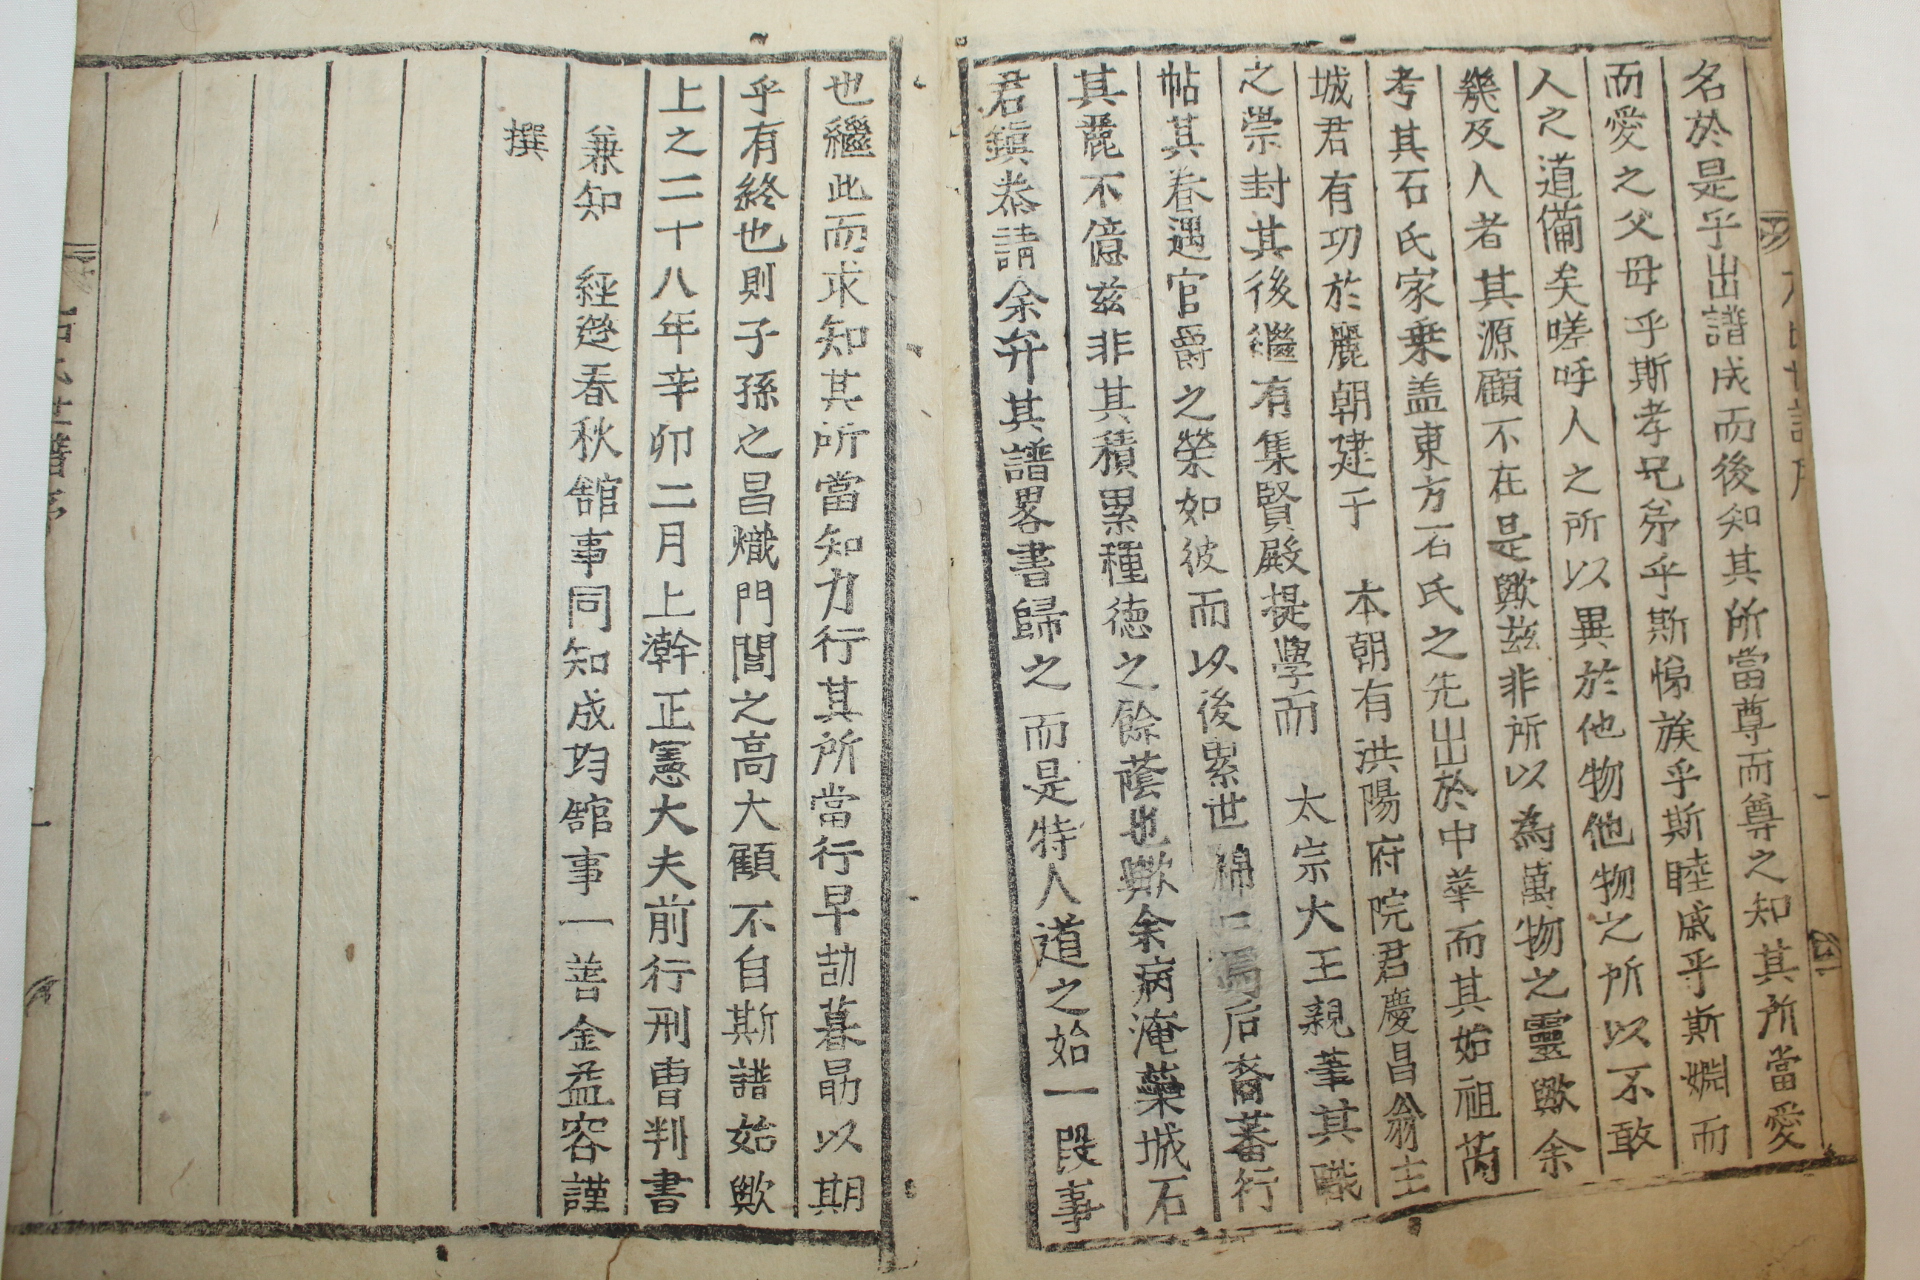 名於是乎出譜成而後知其所當尊而尊之知其所當愛
而愛之父母乎斯孝兄弟乎斯悌族乎斯睦戚乎斯婣而
人之道備矣嗟呼人之所以異於他物他物之所以不敢
幾及人者其源顧不在是歟茲非所以為萬物之靈歟余
考其石氏家乗盖東方石氏之先出於中華而其始祖芮
城君有功於麗朝建于 本朝有洪陽府院君慶昌翁主
之崇封其後繼有集賢殿提學而 太宗大王親筆其職
帖其眷遇官爵之榮如彼而以後累世綿 焉后裔蕃衍
其麗不億茲非其積累種德之餘蔭也歟余病淹藥城石
君鎭恭請余弁其譜畧書歸之而是特人道之始一段事
也繼此而求知其所當知力行其所當行早劼暮勗以期
乎有終也則子孫之昌熾門閭之高大顧不自斯譜始歟
上之二十八年辛卯二月上澣正憲大夫前行刑曹判書
兼知 經筵春秋舘事同知成均舘事一善金益容謹
撰
石氏世譜序
一